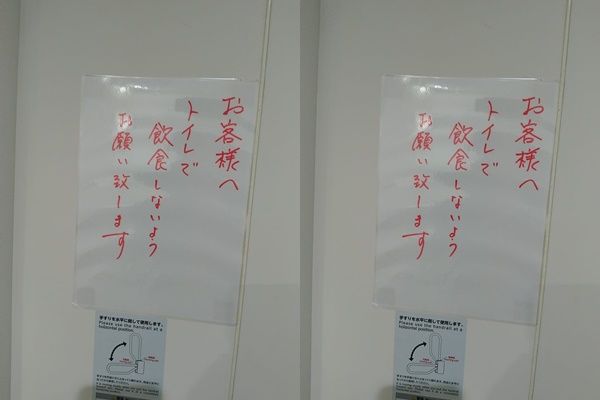 お客様へ
トイレで
飲食しないよう
お願い致します
手すりを水平に倒して使用します。
Please use the handrail at a
horizontal position.
お客様へ
トイレで
飲食しないよう
お願い致します
手すりを水平に倒して使用します。
Please use the handrail at a
horizontal position.